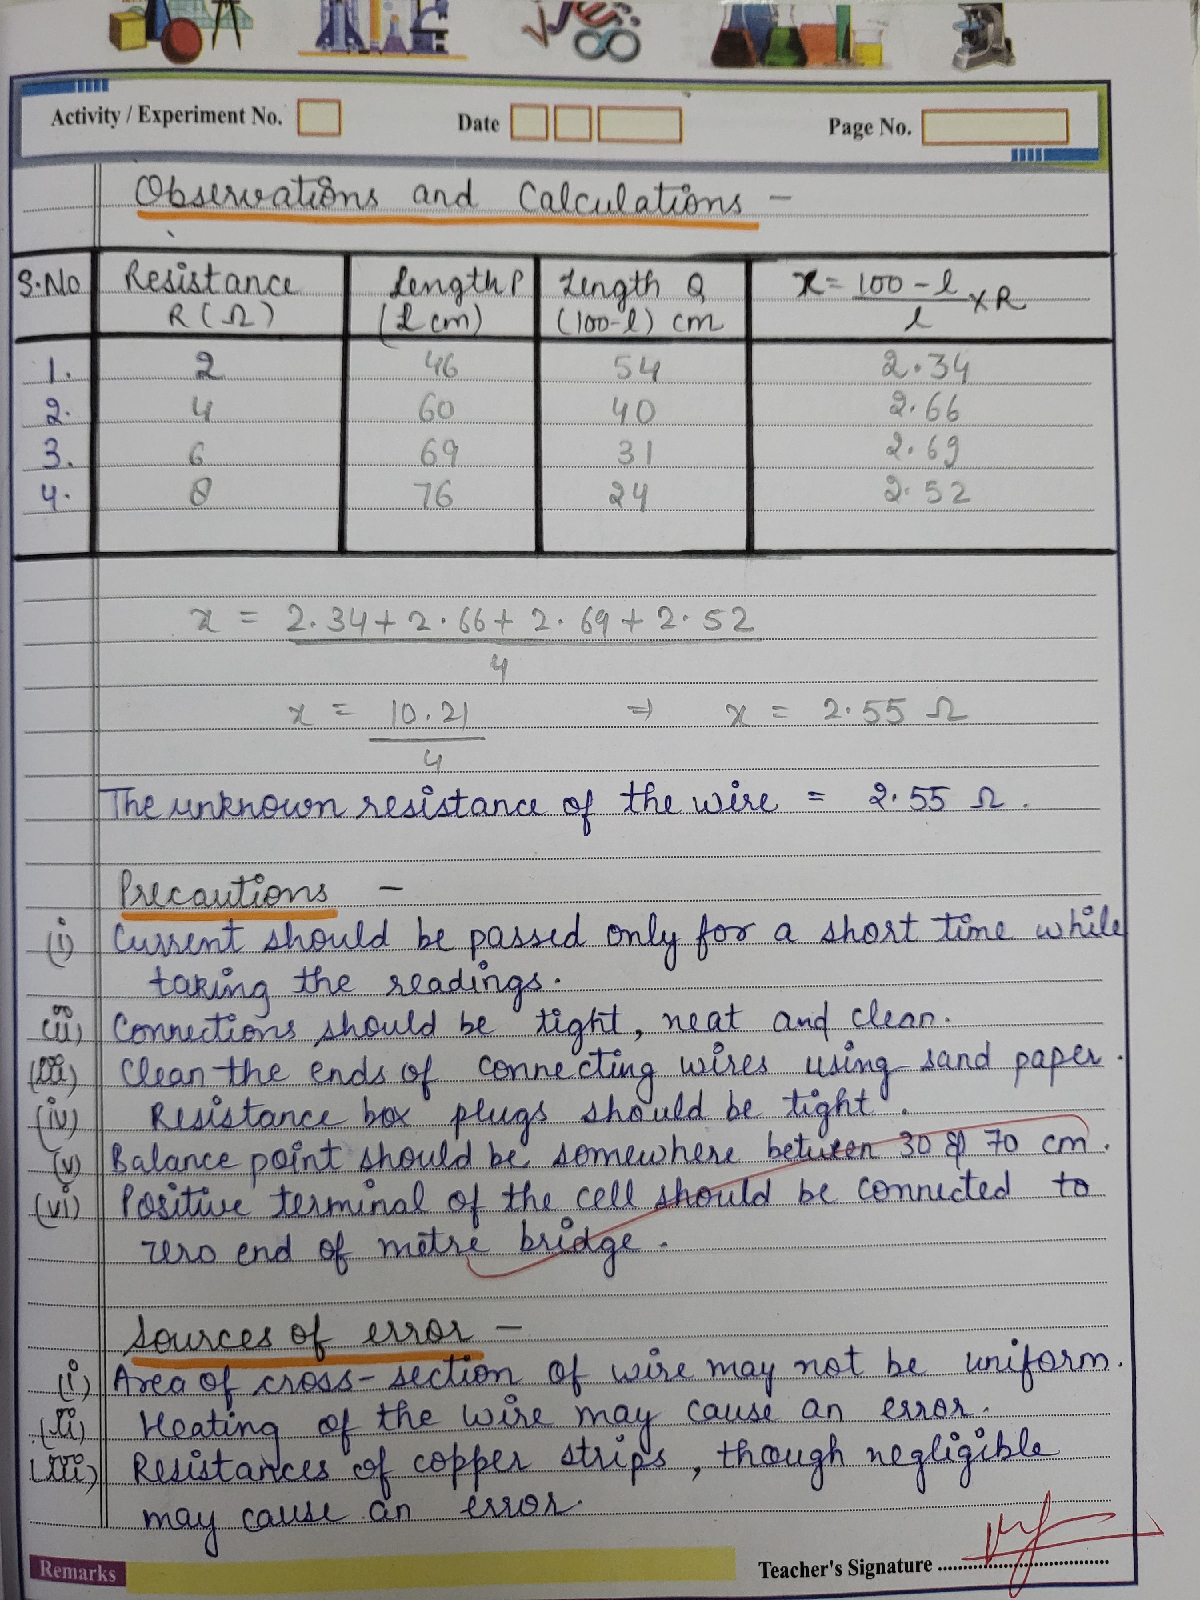 Activity / Experiment No.
Date
Page No.
Observations and Calculations -
S.No Resistance R(Ω) Length P (l cm) Length Q (100-l) cm x = 100-l/l × R
1. 2 46 54 2.34
2. 4 60 40 2.66
3. 6 69 31 2.69
4. 8 76 24 2.52
x = 2.34 + 2.66 + 2.69 + 2.52
4
x = 10.21 ⇒ x = 2.55 Ω
4
The unknown resistance of the wire = 2.55 Ω.
Precautions -
(i) Current should be passed only for a short time while
taking the readings.
(ii) Connections should be tight, neat and clean.
(iii) Clean the ends of connecting wires using sand paper.
(iv) Resistance box plugs should be tight.
(v) Balance point should be somewhere between 30 & 70 cm.
(vi) Positive terminal of the cell should be connected to
zero end of metre bridge.
Sources of error -
(i) Area of cross-section of wire may not be uniform.
(ii) Heating of the wire may cause an error.
(iii) Resistances of copper strips, though negligible
may cause an error.
Remarks
Teacher's Signature